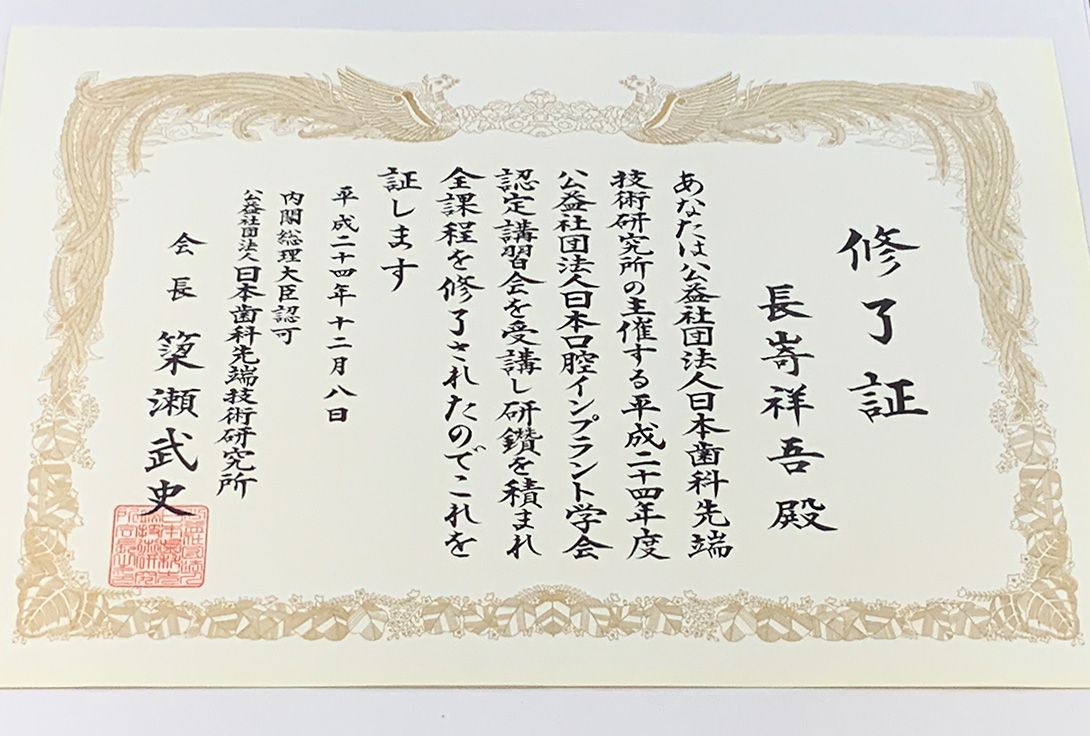 修了証
長嵜祥吾殿
あなたは公益社団法人日本歯科先端
技術研究所の主催する平成二十四年度
公益社団法人日本口腔インプラント学会
認定講習会を受講し研鑽を積まれ
全課程を修了されたのでこれを
証します
平成二十四年十二月八日
内閣総理大臣認可
公益社団法人日本歯科先端技術研究所
会長 簗瀬武史